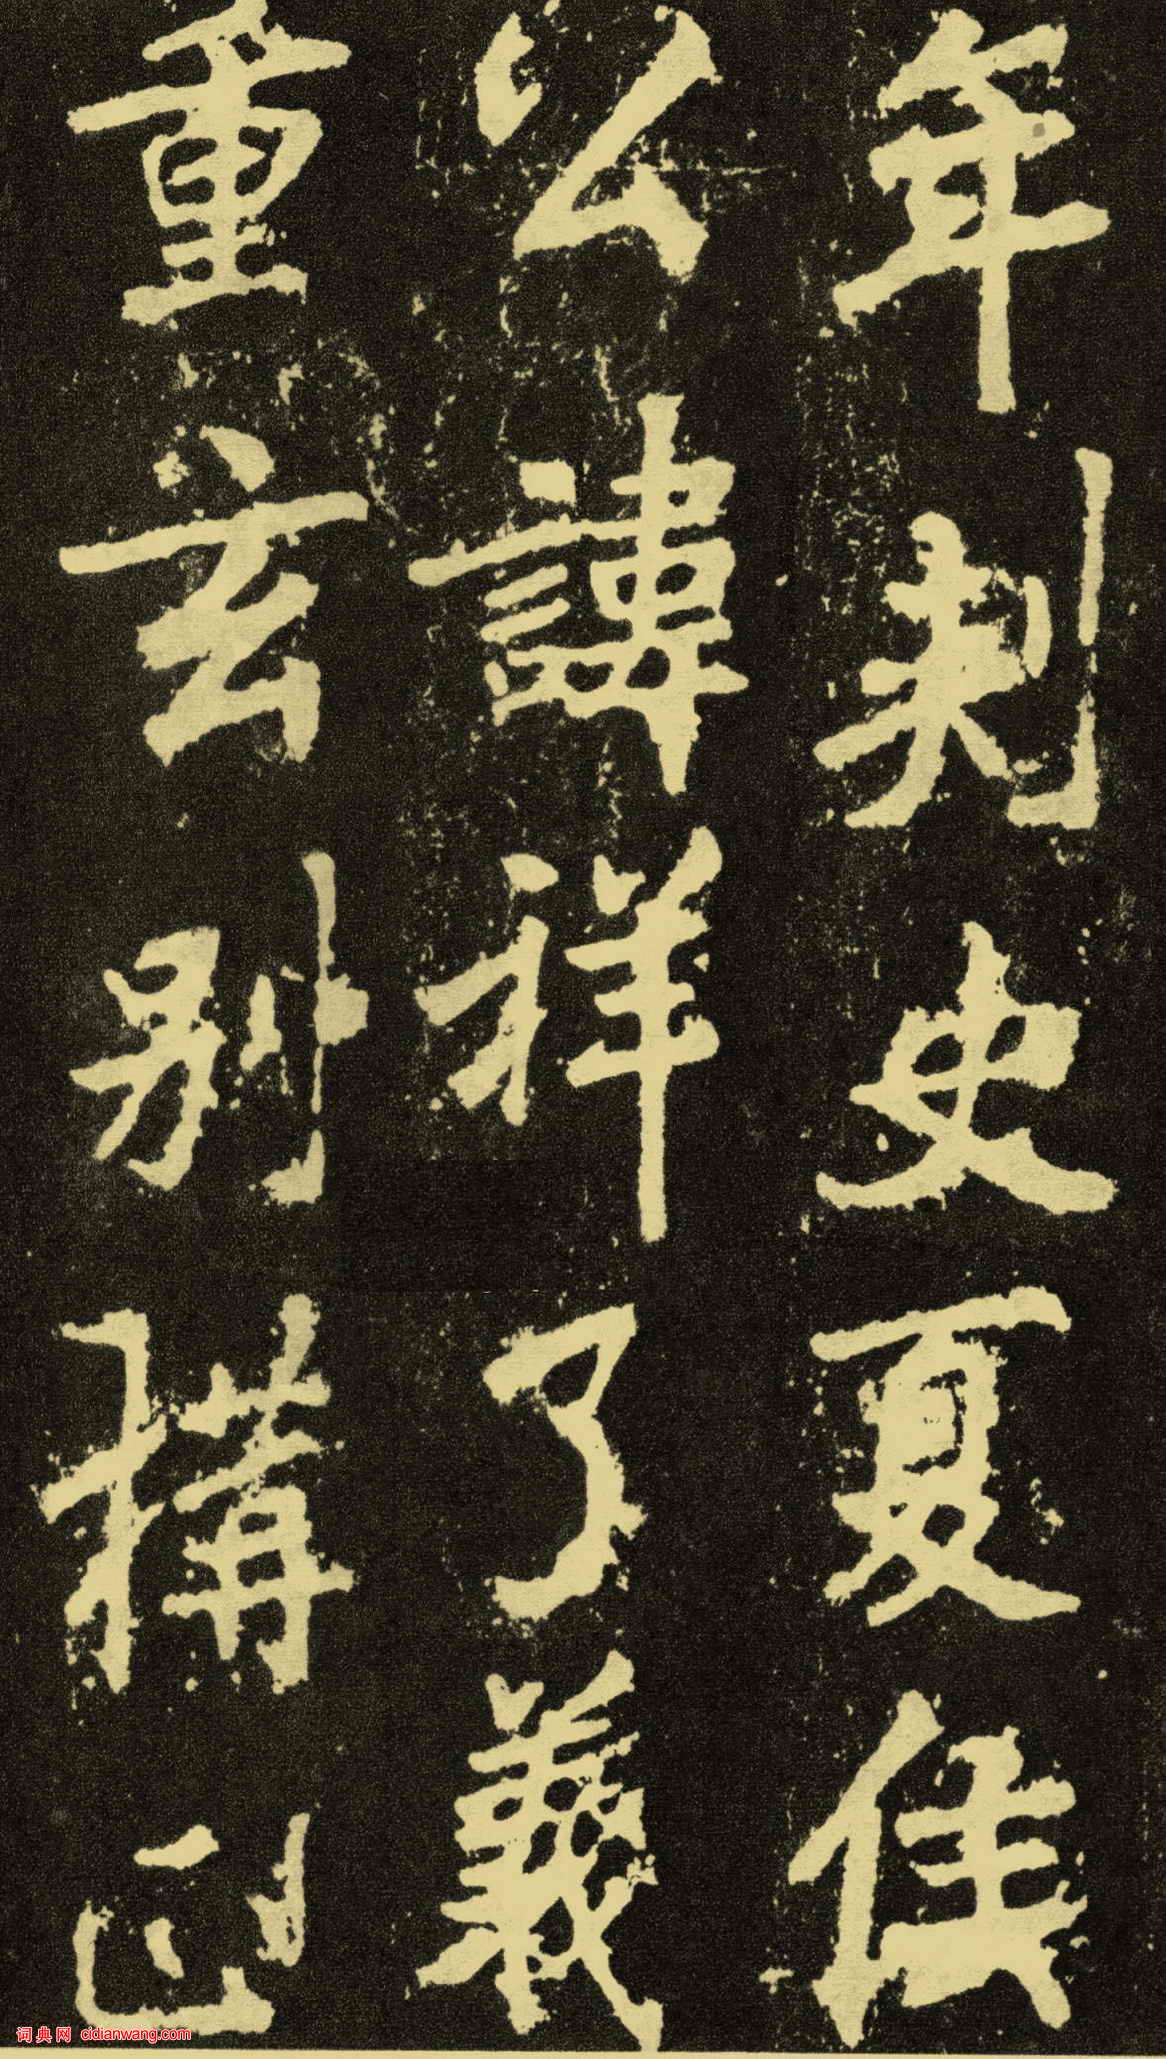 年刺史夏佳
公諱祥了義
重玄別構正
词典网 cidianwang.com